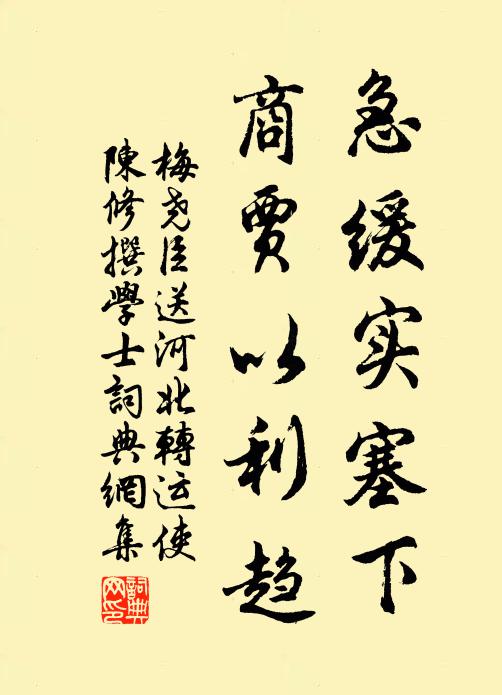 急缓实塞下
商贾以利趋
梅尧臣送河北轉运使
陳修撰學士詞典網集
詞典网印